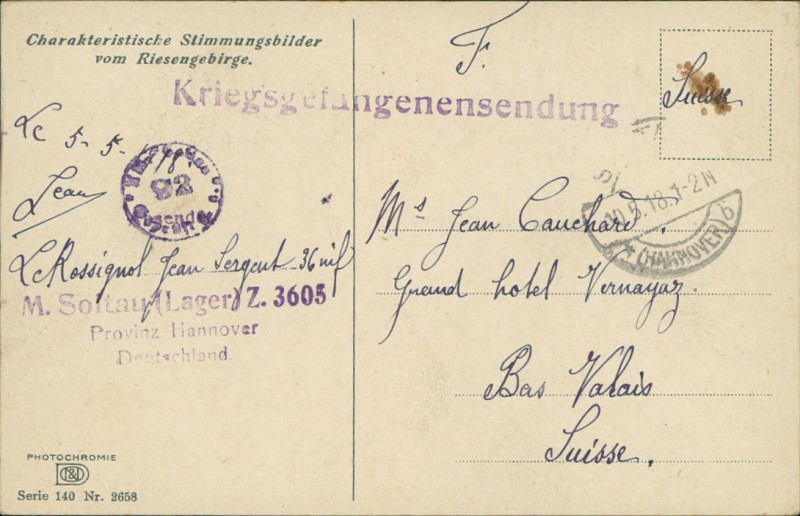 Charakteristische Stimmungsbilder
vom Riesengebirge.
F.
Kriegsgefangenensendung
Suisse
Le 5-5-18.
Jean
92
LeRossignol Jean Sergent 36 inf
M. Soltau (Lager) Z. 3605
Provinz Hannover
Deutschland.
10.5.18.1-2N
* (HANNOVER) b
Ms Jean Cauchard.
Grand hotel Vernayaz.
Bas Valais
Suisse.
PHOTOCHROMIE
Serie 140 Nr. 2658